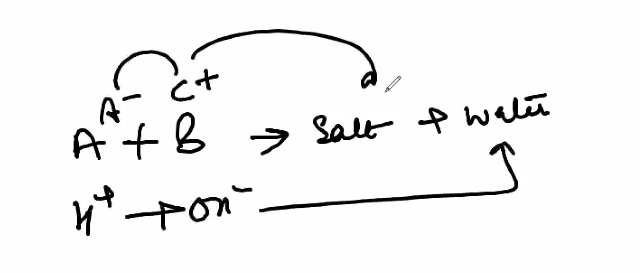 A⁻ C⁺
A + B → Salt + Water
H⁺ → OH⁻